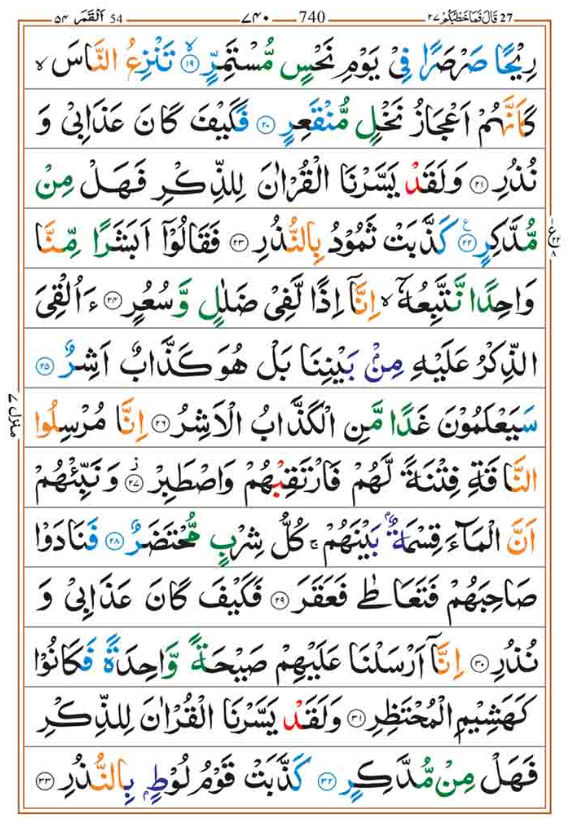 27 قَالَ فَمَا خَطْبُكُمْ ٢٧ — 740 — ٧٤٠ — 54 اَلْقَمَر ٥٤
رِيْحًا صَرْصَرًا فِيْ يَوْمِ نَحْسٍ مُّسْتَمِرٍّ ۙ‏ ﴿١٩﴾ تَنْزِعُ النَّاسَ ۙ
كَاَنَّهُمْ اَعْجَازُ نَخْلٍ مُّنْقَعِرٍ ﴿٢٠﴾ فَكَيْفَ كَانَ عَذَابِيْ وَ
نُذُرِ ﴿٢١﴾ وَلَقَدْ يَسَّرْنَا الْقُرْاٰنَ لِلذِّكْرِ فَهَلْ مِنْ
مُّدَّكِرٍ ﴿٢٢﴾ ع كَذَّبَتْ ثَمُوْدُ بِالنُّذُرِ ﴿٢٣﴾ فَقَالُوْٓا اَبَشَرًا مِّنَّا
وَاحِدًا نَّتَّبِعُهٗٓ ۙ اِنَّآ اِذًا لَّفِيْ ضَلٰلٍ وَّسُعُرٍ ﴿٢٤﴾ ءَاُلْقِيَ
الذِّكْرُ عَلَيْهِ مِنْۢ بَيْنِنَا بَلْ هُوَ كَذَّابٌ اَشِرٌ ﴿٢٥﴾
سَيَعْلَمُوْنَ غَدًا مَّنِ الْكَذَّابُ الْاَشِرُ ﴿٢٦﴾ اِنَّا مُرْسِلُوا
النَّاقَةِ فِتْنَةً لَّهُمْ فَارْتَقِبْهُمْ وَاصْطَبِرْ ﴿٢٧﴾ وَنَبِّئْهُمْ
اَنَّ الْمَآءَ قِسْمَةٌۢ بَيْنَهُمْ ۚ كُلُّ شِرْبٍ مُّحْتَضَرٌ ﴿٢٨﴾ فَنَادَوْا
صَاحِبَهُمْ فَتَعَاطٰى فَعَقَرَ ﴿٢٩﴾ فَكَيْفَ كَانَ عَذَابِيْ وَ
نُذُرِ ﴿٣٠﴾ اِنَّآ اَرْسَلْنَا عَلَيْهِمْ صَيْحَةً وَّاحِدَةً فَكَانُوْا
كَهَشِيْمِ الْمُحْتَظِرِ ﴿٣١﴾ وَلَقَدْ يَسَّرْنَا الْقُرْاٰنَ لِلذِّكْرِ
فَهَلْ مِنْ مُّدَّكِرٍ ﴿٣٢﴾ كَذَّبَتْ قَوْمُ لُوْطٍۭ بِالنُّذُرِ ﴿٣٣﴾
منزل ٧